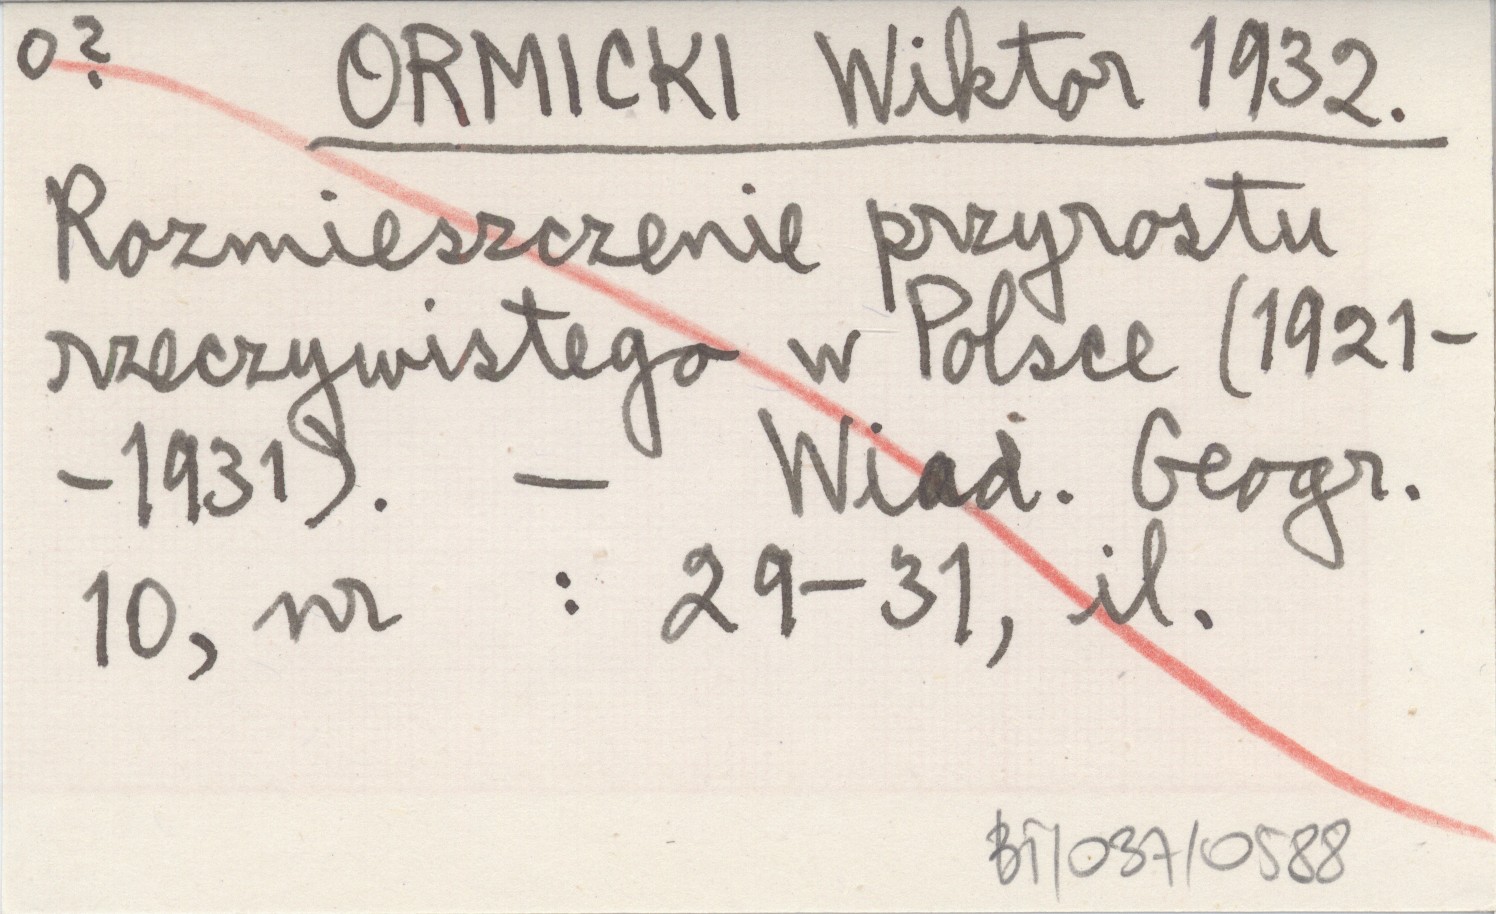 o? ORMICKI Wiktor 1932.
Rozmieszczenie przyrostu
rzeczywistego w Polsce (1921-
-1931). — Wiad. Geogr.
10, nr : 29-31, il.
BT/037/0588